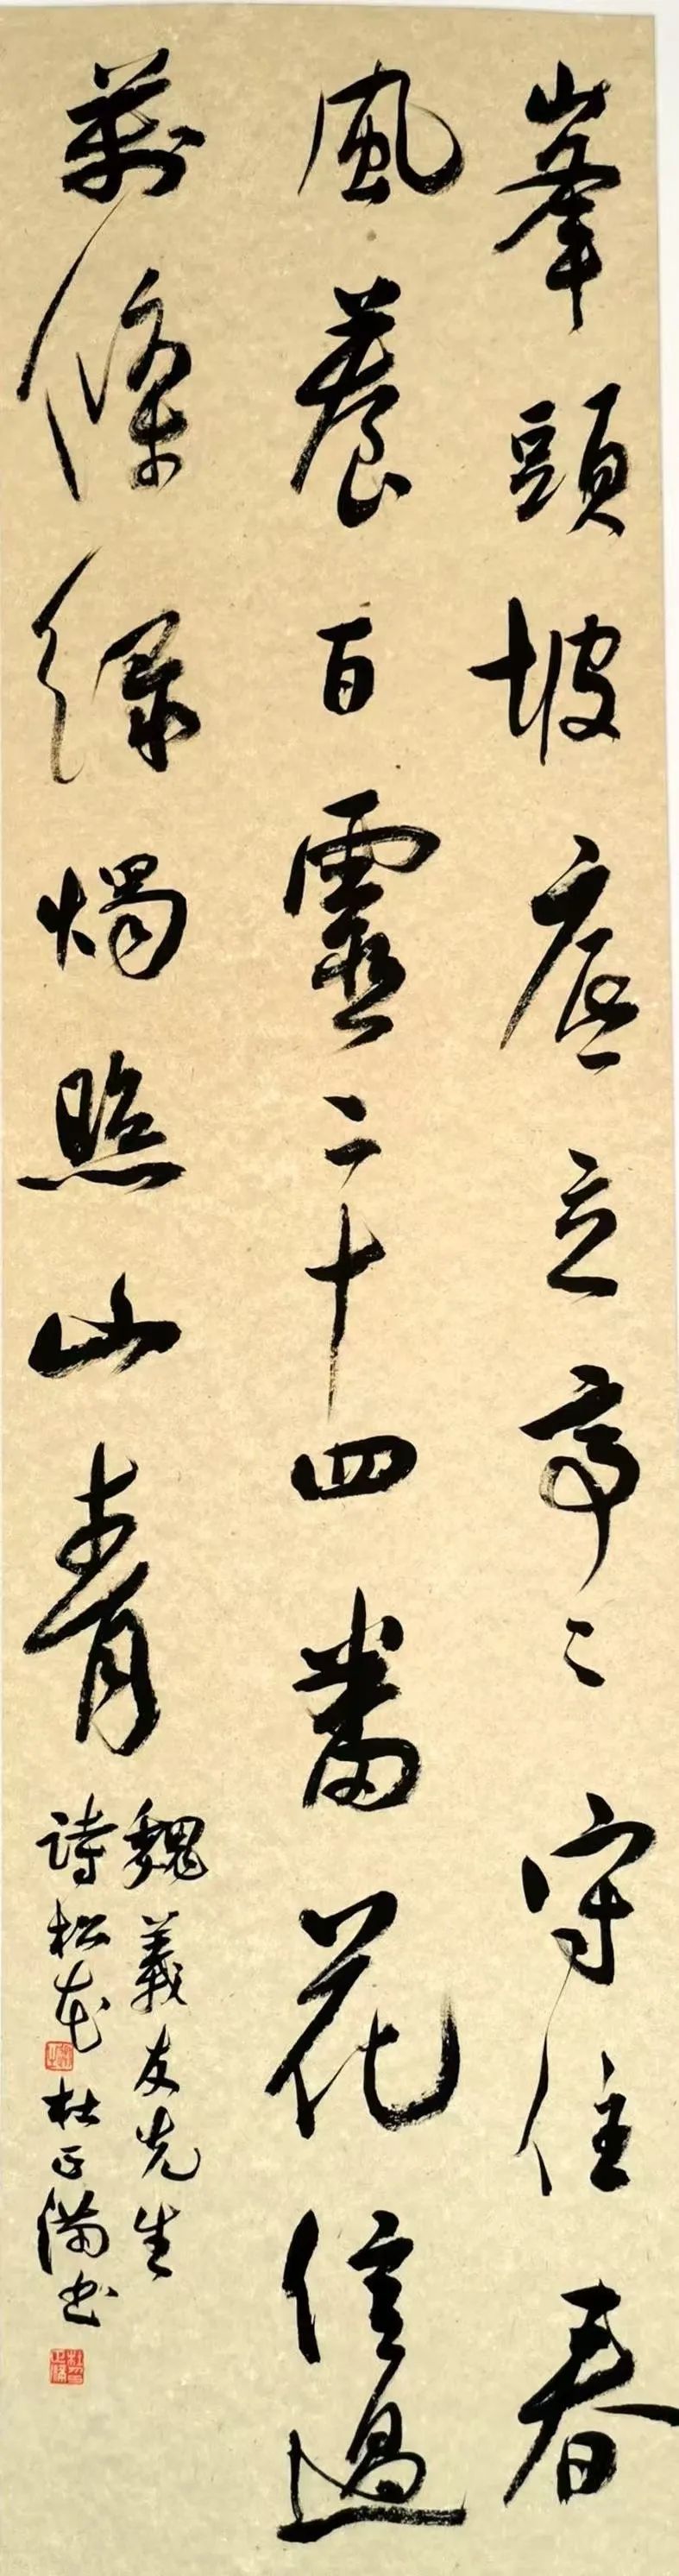 峯頭坡底立亭〻守住春
風養百靈二十四番花信過
萬條綠燭照山青
魏義友先生
詩松花 杜正滿书